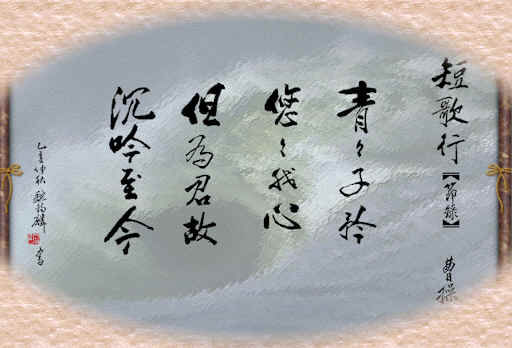 短歌行【節錄】 曹操
青々子衿
悠々我心
但為君故
沉吟至今
乙亥仲秋 魏鈞麟 書